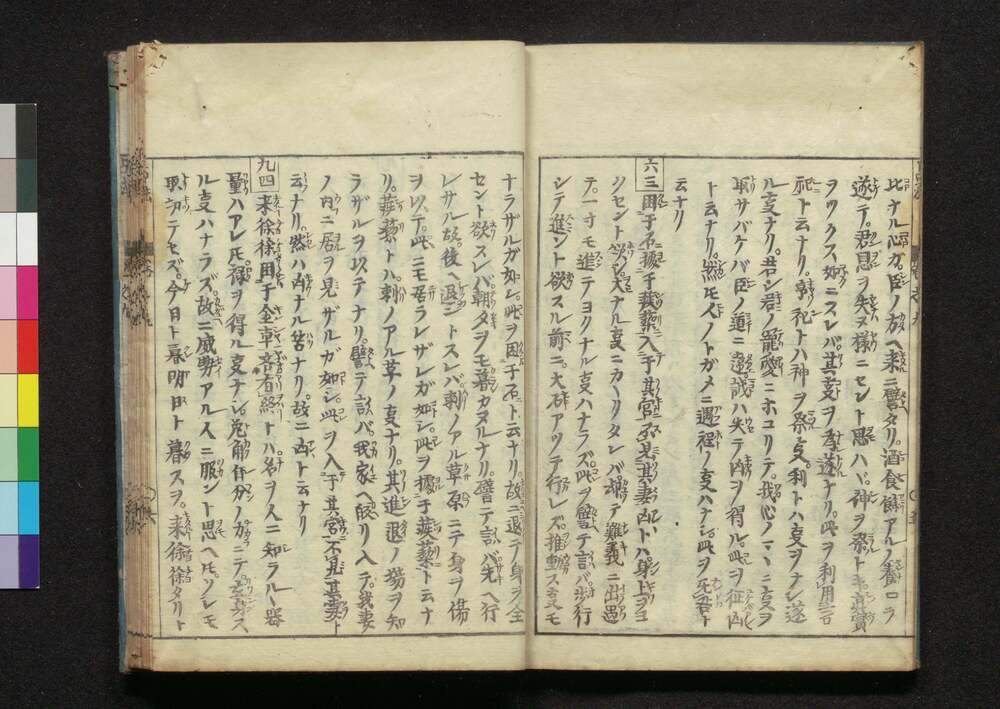 比ナル心ガ。臣ノ方ヘ来ニ譬タリ。酒食餅アルノ養ロラ
遂テ。君恩ヲ失ヌ様ニセント思ハバ。神ヲ祭トキ。
ヲツクス如ニスレバ。其変ヲ遂ナリ。此ヲ利用言
祀ト云ナリ。祀トハ神ヲ祭変。利トハ変ヲナシ遂
ル変ナリ。若シ君ノ寵愛ニホコリテ。我心ノマヽニ変ヲ
取サバケバ臣ノ道ニ誠ハ失テ凶ヲ得ル。此ヲ征凶
ト云ナリ。然モ人ノトガメニ遇程ノ変ハナシ。此ヲ无咎ト
云ナリ
六三 困于石據于蒺蔾入于其宮不見其妻凶トハ身上ヲヨ
クセント欲シ。大ナル変ニカヽリタレバ。却テ難義ニ出遇
テ。一寸モ進テヨクナル変ハナラズ。此ヲ譬テ言バ。歩行
シテ進ント欲スル前ニ。大石アツテ行レズ。推動ス変モ
ナラザルガ如シ。此ヲ困于石ト云ナリ。故ニ退テ身ヲ全
セント欲スレバ朝夕ヲモ暮カヌルナリ。譬テ言バ先ヘ行
レサル故。後ヘ退ントスレバ刺ノアル草原ニテ身ヲ傷
ヲ以テ。此ニモ居ラレザルガ如シ。此ヲ據于蒺蔾ト云ナ
リ。蒺蔾トハ刺ノアル草ノ変ナリ。其進退ノ場ヲ知
ラザルヲ以テナリ。譬テ言バ我家ヘ皈リ入テ。我妻
ノ内ニ居ヲ見ザルガ如シ。此ヲ入于其宮不見其妻ト
云ナリ。然ハ凶ナル苦ナリ。故ニ凶ト云ナリ
九四 来徐徐困于金車吝有終トハ名ヲ人ニ知ラルヽ器
量ハアレモ禄ヲ得ル変ナシ。兎角自分ノ力ニテ立身ス
ル変ハナラズ。故ニ威勢アル人ニ服ント思ヘ𪜈。ソレモ
取切テセズ。今日ト暮明日ト暮スヲ。来徐徐タリト